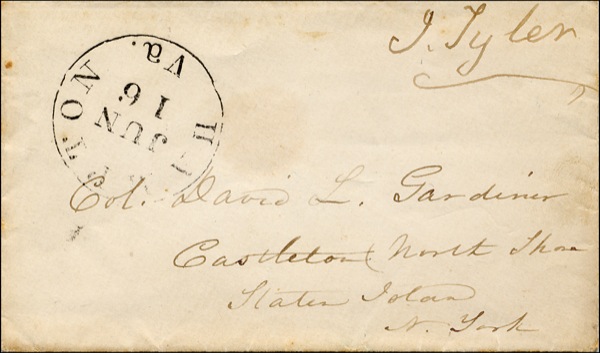 J. Tyler
Va.
JUN
16
Col. David L. Gardiner
Castleton North Shore
Staten Island
N. York